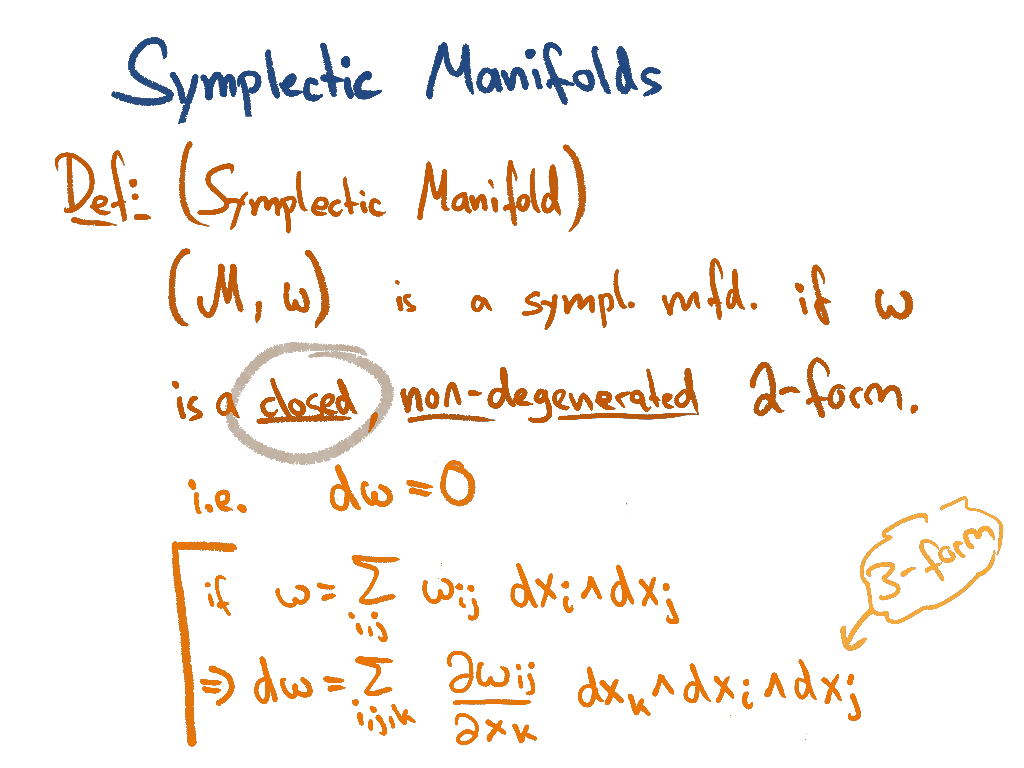 Symplectic Manifolds
Def: (Symplectic Manifold)
(M, ω) is a sympl. mfd. if ω
is a closed, non-degenerated 2-form.
i.e. dω = 0
if ω = ∑_{i,j} ω_{ij} dx_i ∧ dx_j
3-form
⇒ dω = ∑_{i,j,k} ∂ω_{ij}/∂x_k dx_k ∧ dx_i ∧ dx_j